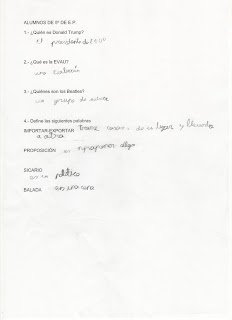 ALUMNOS DE 5º DE E.P.
1.- ¿Quién es Donald Trump?
el presidente de EEUU
2.- ¿Qué es la EVAU?
una
3.- ¿Quiénes son los Beatles?
un grupo de
4.- Define las siguientes palabras
IMPORTAR-EXPORTAR Traerse cosas de un lugar y llevarlas
a otro
PROPOSICIÓN es proponer algo
SICARIO
es un político
BALADA es una